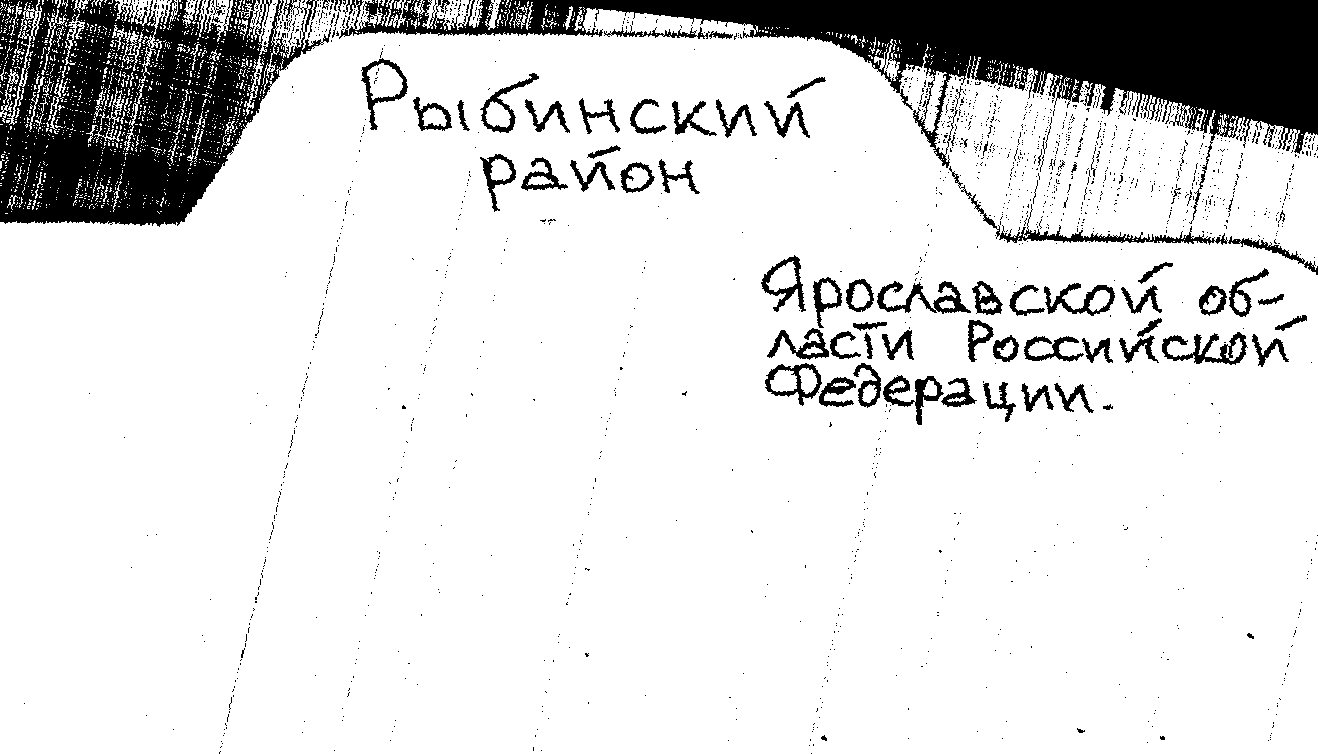 Рыбинский
район
Ярославской об-
ласти Российской
Федерации.